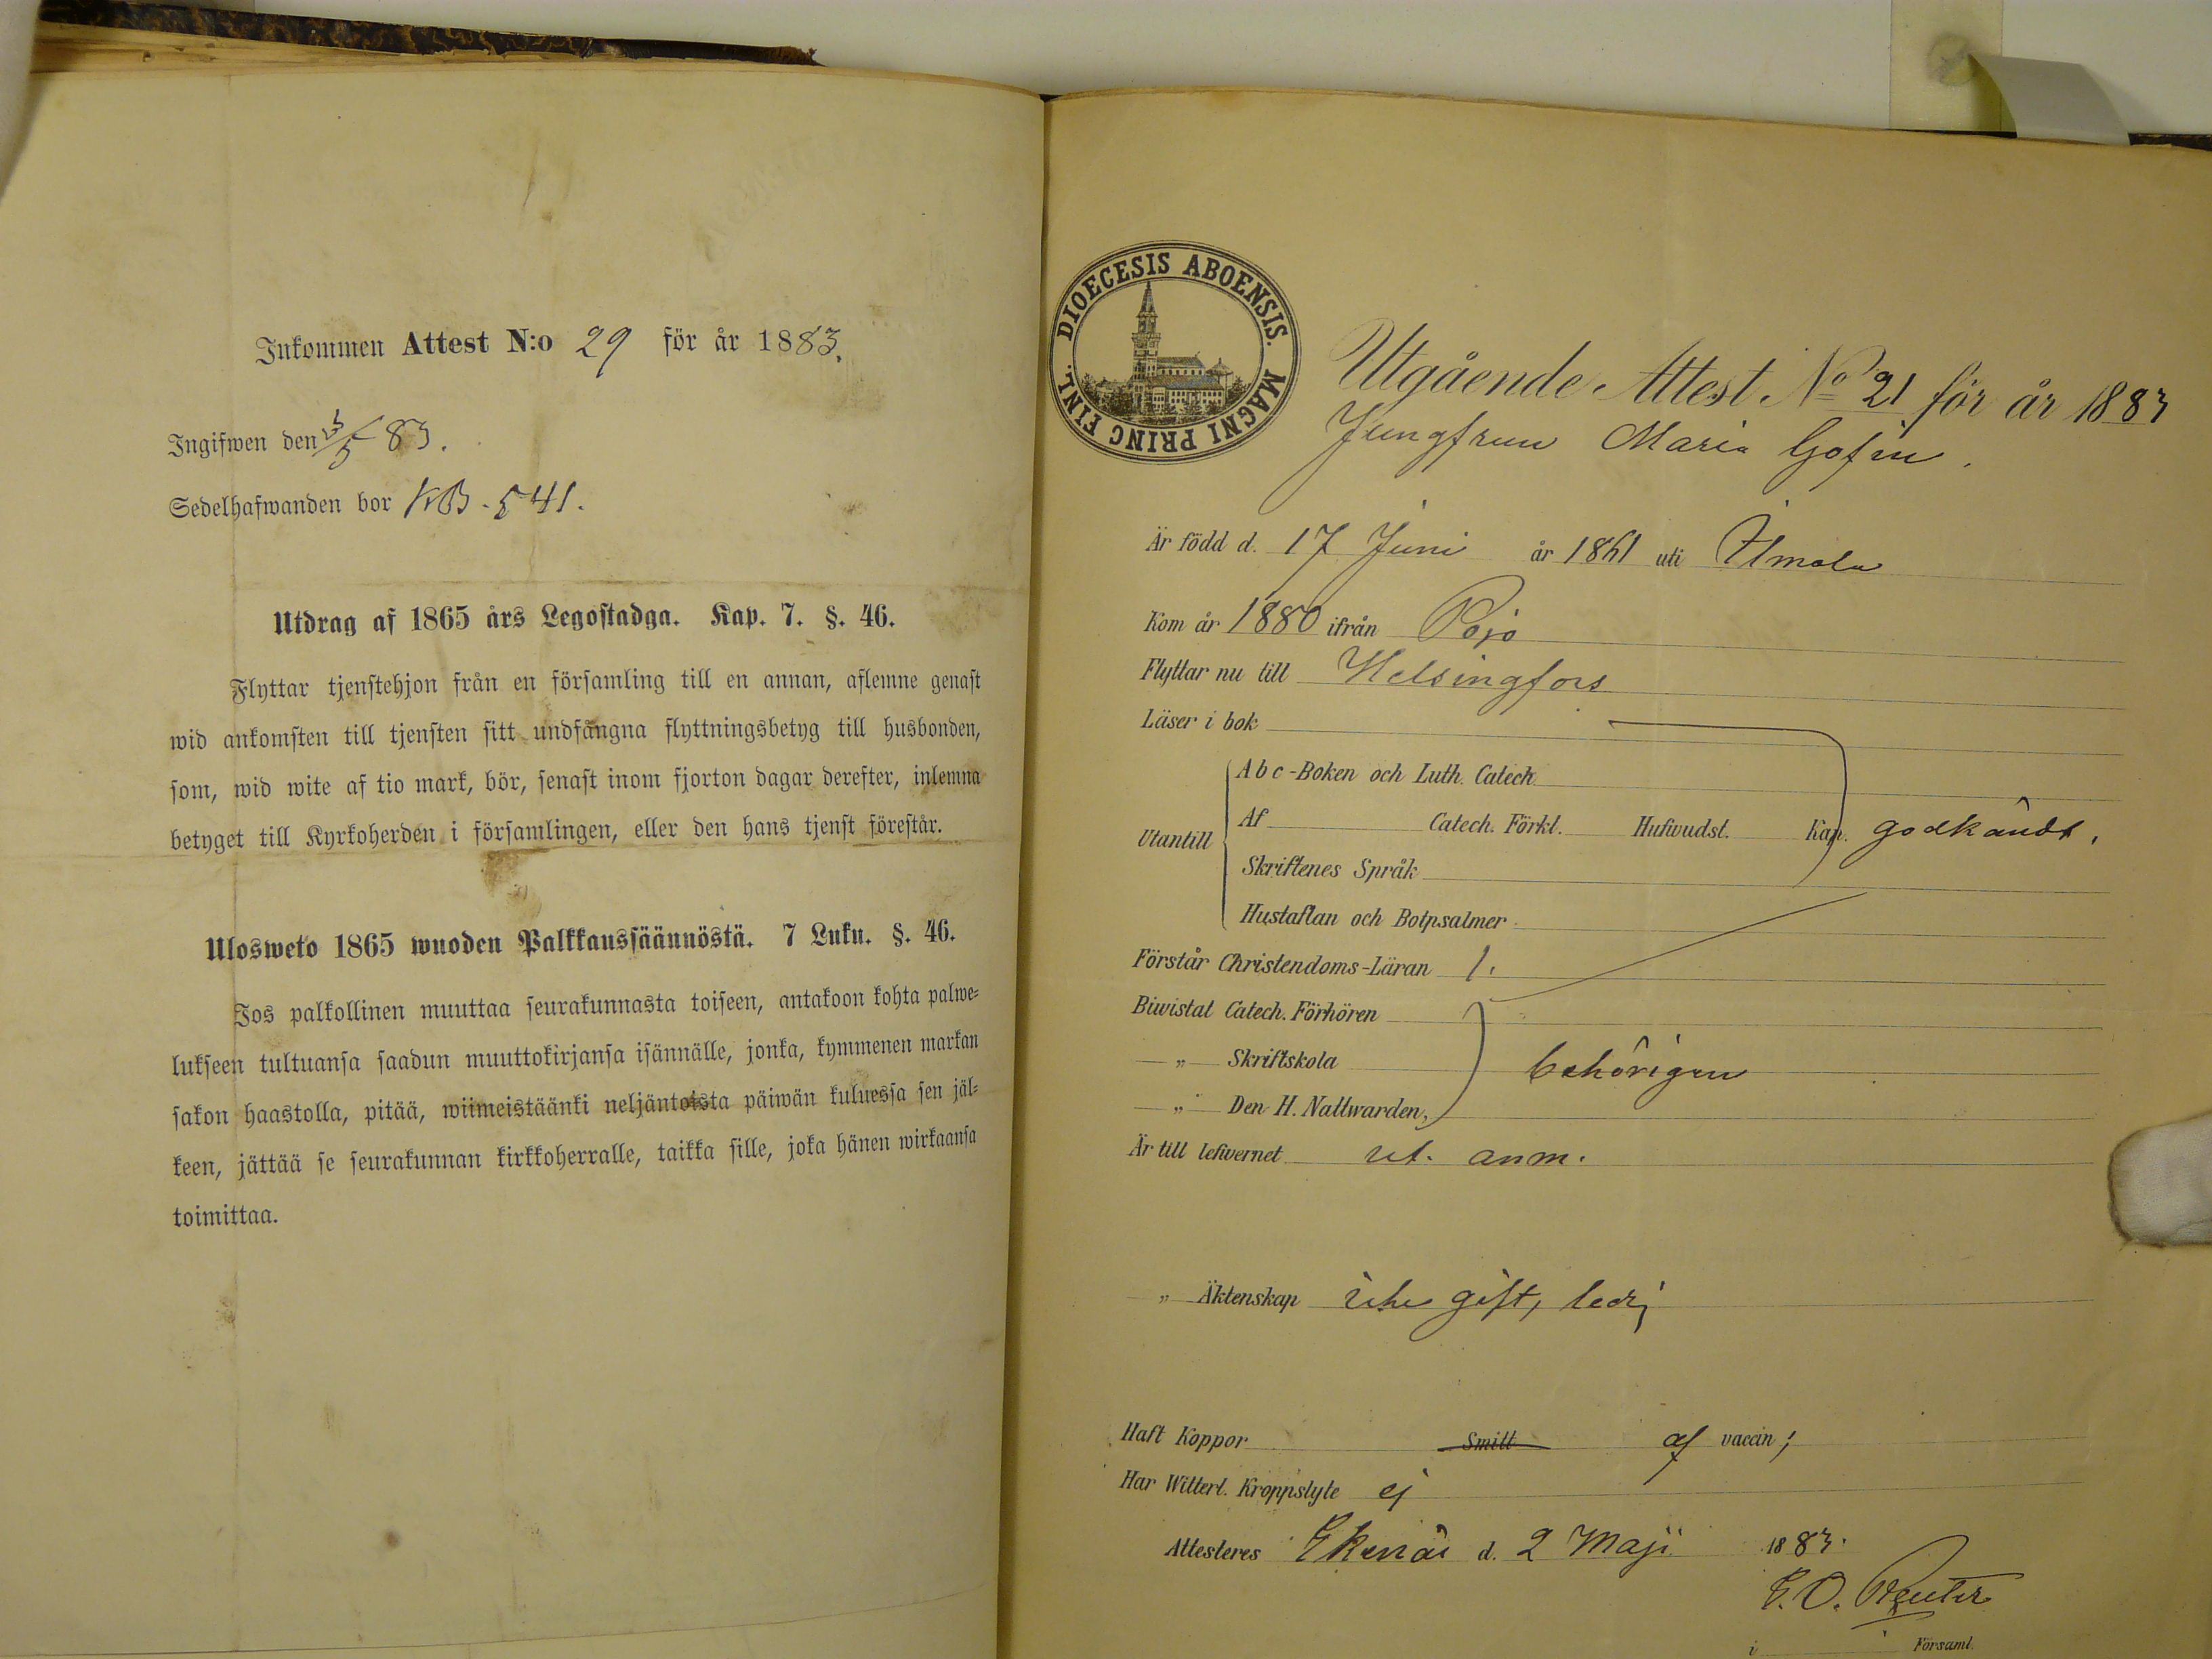 Inkommen Attest N:o 29 för år 1883.
Ingifwen den 3/5 83.
Sedelhafwanden bor KB. 541.
Utdrag af 1865 års Legostadga. Kap. 7. §. 46.
Flyttar tjenstehjon från en församling till en annan, aflemne genast
wid ankomsten till tjensten sitt undfångna flyttningsbetyg till husbonden,
som, wid wite af tio mark, bör, senast inom fjorton dagar derefter, inlemna
betyget till Kyrkoherden i församlingen, eller den hans tjenst förestår.
Ulosweto 1865 wuoden Palkkaussäännöstä. 7 Luku. §. 46.
Jos palkollinen muuttaa seurakunnasta toiseen, antakoon kohta palwe=
lukseen tultuansa saadun muuttokirjansa isännälle, jonka, kymmenen markan
sakon haastolla, pitää, wiimeistäänki neljäntoista päiwän kuluessa sen jäl=
keen, jättää se seurakunnan kirkkoherralle, taikka sille, joka hänen wirkaansa
toimittaa.
DIOECESIS ABOENSIS. MAGNI PRINC FINL.
Utgående Attest No 21 för år 1883
Jungfrun Maria
Är född d. 17 Juni år 1861 uti Ilmola
Kom år 1880 ifrån Pojo
Flyttar nu till Helsingfors
Läser i bok
Utantill
Abc-Boken och Luth. Catech.
Af Catech. Förkl. Hufwudst. Kap. godkändt.
Skriftenes Språk
Hustaflan och Botpsalmer
Förstår Christendoms-Läran 1.
Biwistat Catech. Förhören
„ Skriftskola behörigen
„ Den H. Nattwarden,
Är till lefwernet ut. anm.
„ Äktenskap icke gift, ledig
Haft Koppor Smitt af vaccin;
Har Witterl. Kroppslyte ej
Attesteres Ekenäs d. 2 Maji 1883.
E. O. Reuter
i Församl.